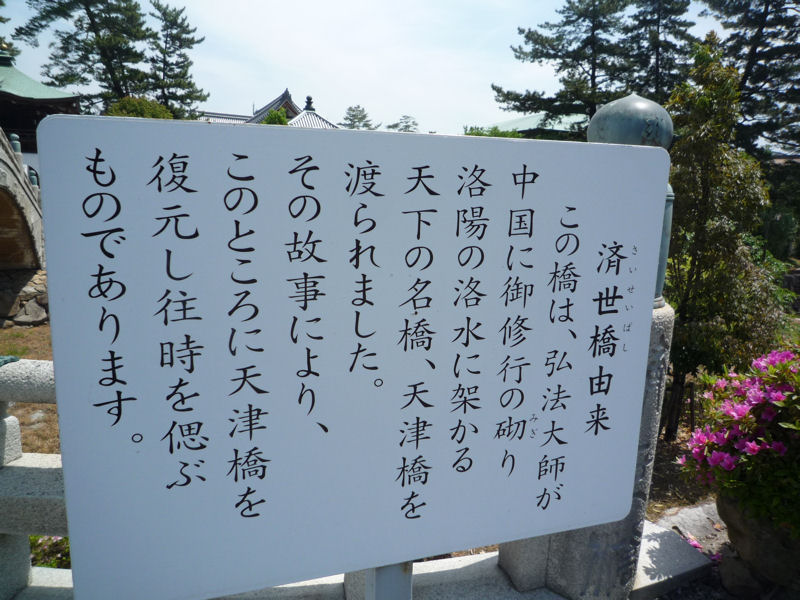 済世橋由来
さいせいばし
この橋は、弘法大師が
中国に御修行の砌り
みぎ
洛陽の洛水に架かる
天下の名橋、天津橋を
渡られました。
その故事により、
このところに天津橋を
復元し往時を偲ぶ
ものであります。